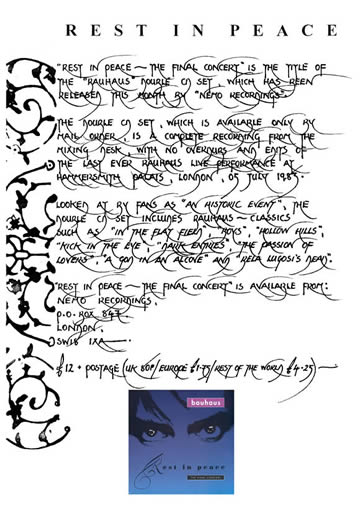 REST IN PEACE
"REST IN PEACE ~ THE FINAL CONCERT" IS THE TITLE OF
THE "BAUHAUS" DOUBLE CD SET, WHICH HAS BEEN
RELEASED THIS MONTH BY "NEMO RECORDINGS".
THE DOUBLE CD SET, WHICH IS AVAILABLE ONLY BY
MAIL ORDER, IS A COMPLETE RECORDING FROM THE
MIXING DESK, WITH NO OVERDUBS AND EDITS OF
THE LAST EVER BAUHAUS LIVE PERFORMANCE AT
HAMMERSMITH PALAIS, LONDON, 05 JULY 1983.
LOOKED AT BY FANS AS "AN HISTORIC EVENT", THE
DOUBLE CD SET INCLUDES BAUHAUS ~ CLASSICS
SUCH AS "IN THE FLAT FIELD", "BOYS", "HOLLOW HILLS",
"KICK IN THE EYE", "DARK ENTRIES", "THE PASSION OF
LOVERS", "A GOD IN AN ALCOVE" AND "BELA LUGOSI'S DEAD".
"REST IN PEACE ~ THE FINAL CONCERT" IS AVAILABLE FROM:
NEMO RECORDINGS,
P.O. BOX 847,
LONDON,
SW18 1XA
£12 + POSTAGE (UK 80P/EUROPE £1.75/REST OF THE WORLD £4.25)
bauhaus
Rest in peace
THE FINAL CONCERT